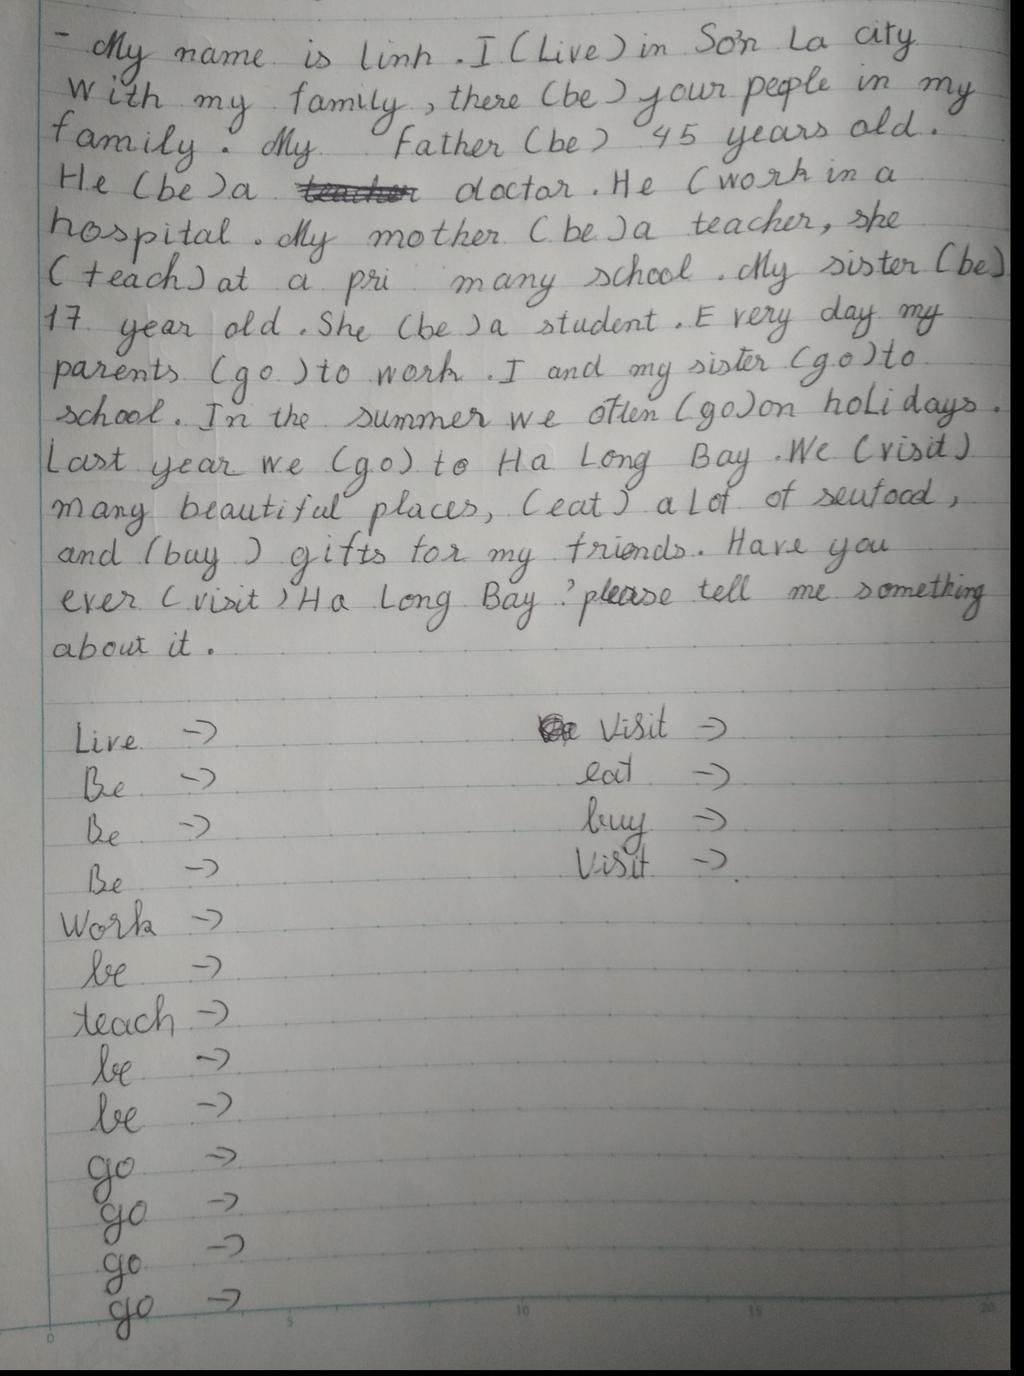 - My name is Linh. I (Live) in Sơn La city
With my family, there (be) your people in my
family. My Father (be) 45 years old.
He (be) a doctor. He (work in a
hospital. My mother (be) a teacher, she
(teach) at a pri many school. My sister (be)
17 year old. She (be) a student. Every day my
parents (go) to work. I and my sister (go) to
school. In the summer we often (go) on holidays.
Last year we (go) to Ha Long Bay. We (visit)
many beautiful places, (eat) a Lot of seufood,
and (buy) gifts for my friends. Have you
ever (visit) Ha Long Bay? please tell me something
about it.
Live ->
Be ->
Be ->
Be ->
Work ->
be ->
teach ->
be ->
be ->
go ->
go ->
go ->
go ->
Visit ->
eat ->
buy ->
Visit ->.
0 5 10 15 20